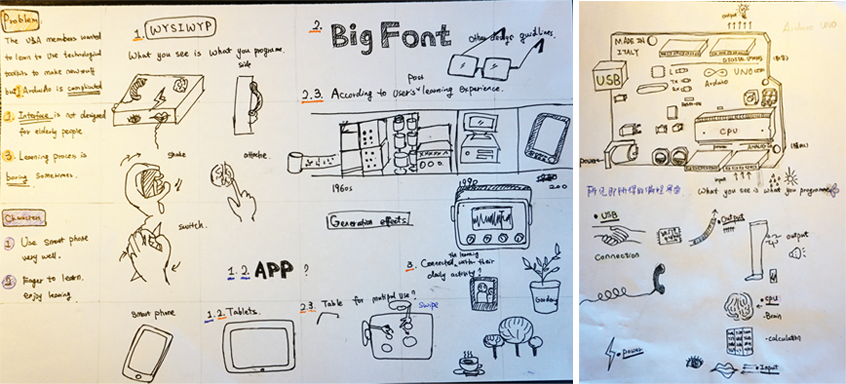 Problem
The U3A members wanted
to learn to use technological
toolkits to make new stuff
but 1. Arduino is complicated
2. Interface is not designed
for elderly people
3. Learning process is
boring sometimes.
Characters
1. Use smart phone
very well.
2. Eager to learn.
enjoy learning
1. WYSIWYP
What you see is what you programe.
side
shake
attache.
switch.
1.2. APP ?
Smart phone
1.2. Tablets.
2.
Big Font
Other design guidlines.
post
2.3. According to User's learning experience.
1960s
1990
200
Generation effects
the learning
3. Connected with their
daily activity?
Garding
2.3. Table for multiple use?
Swipe
output
Arduino UNO
MADE IN
ITALY
DIGITAL
USB
L
TX
RX
UNO
Arduino
CPU
power
ANALOG
所见即所得的编程界面
What you see is what you programme
• USB
Connection
Output
output
• CPU
-Brain
-calculation
• power
• Input